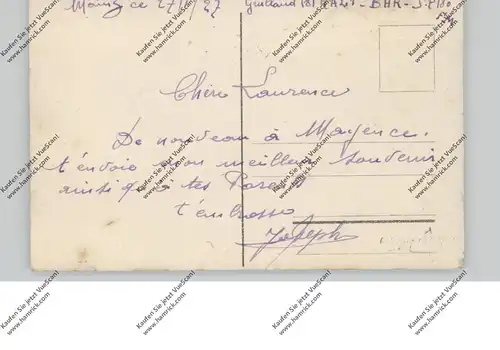 Mainz ce 27/ /27
Chère Laurence
De nouveau à Mayence.
t'envoie mon meilleur souvenir
ainsi qu'à tes Parents
t'embrasse
Joseph
Kaufen Sie jetzt VueScan!
www.hamrick.com